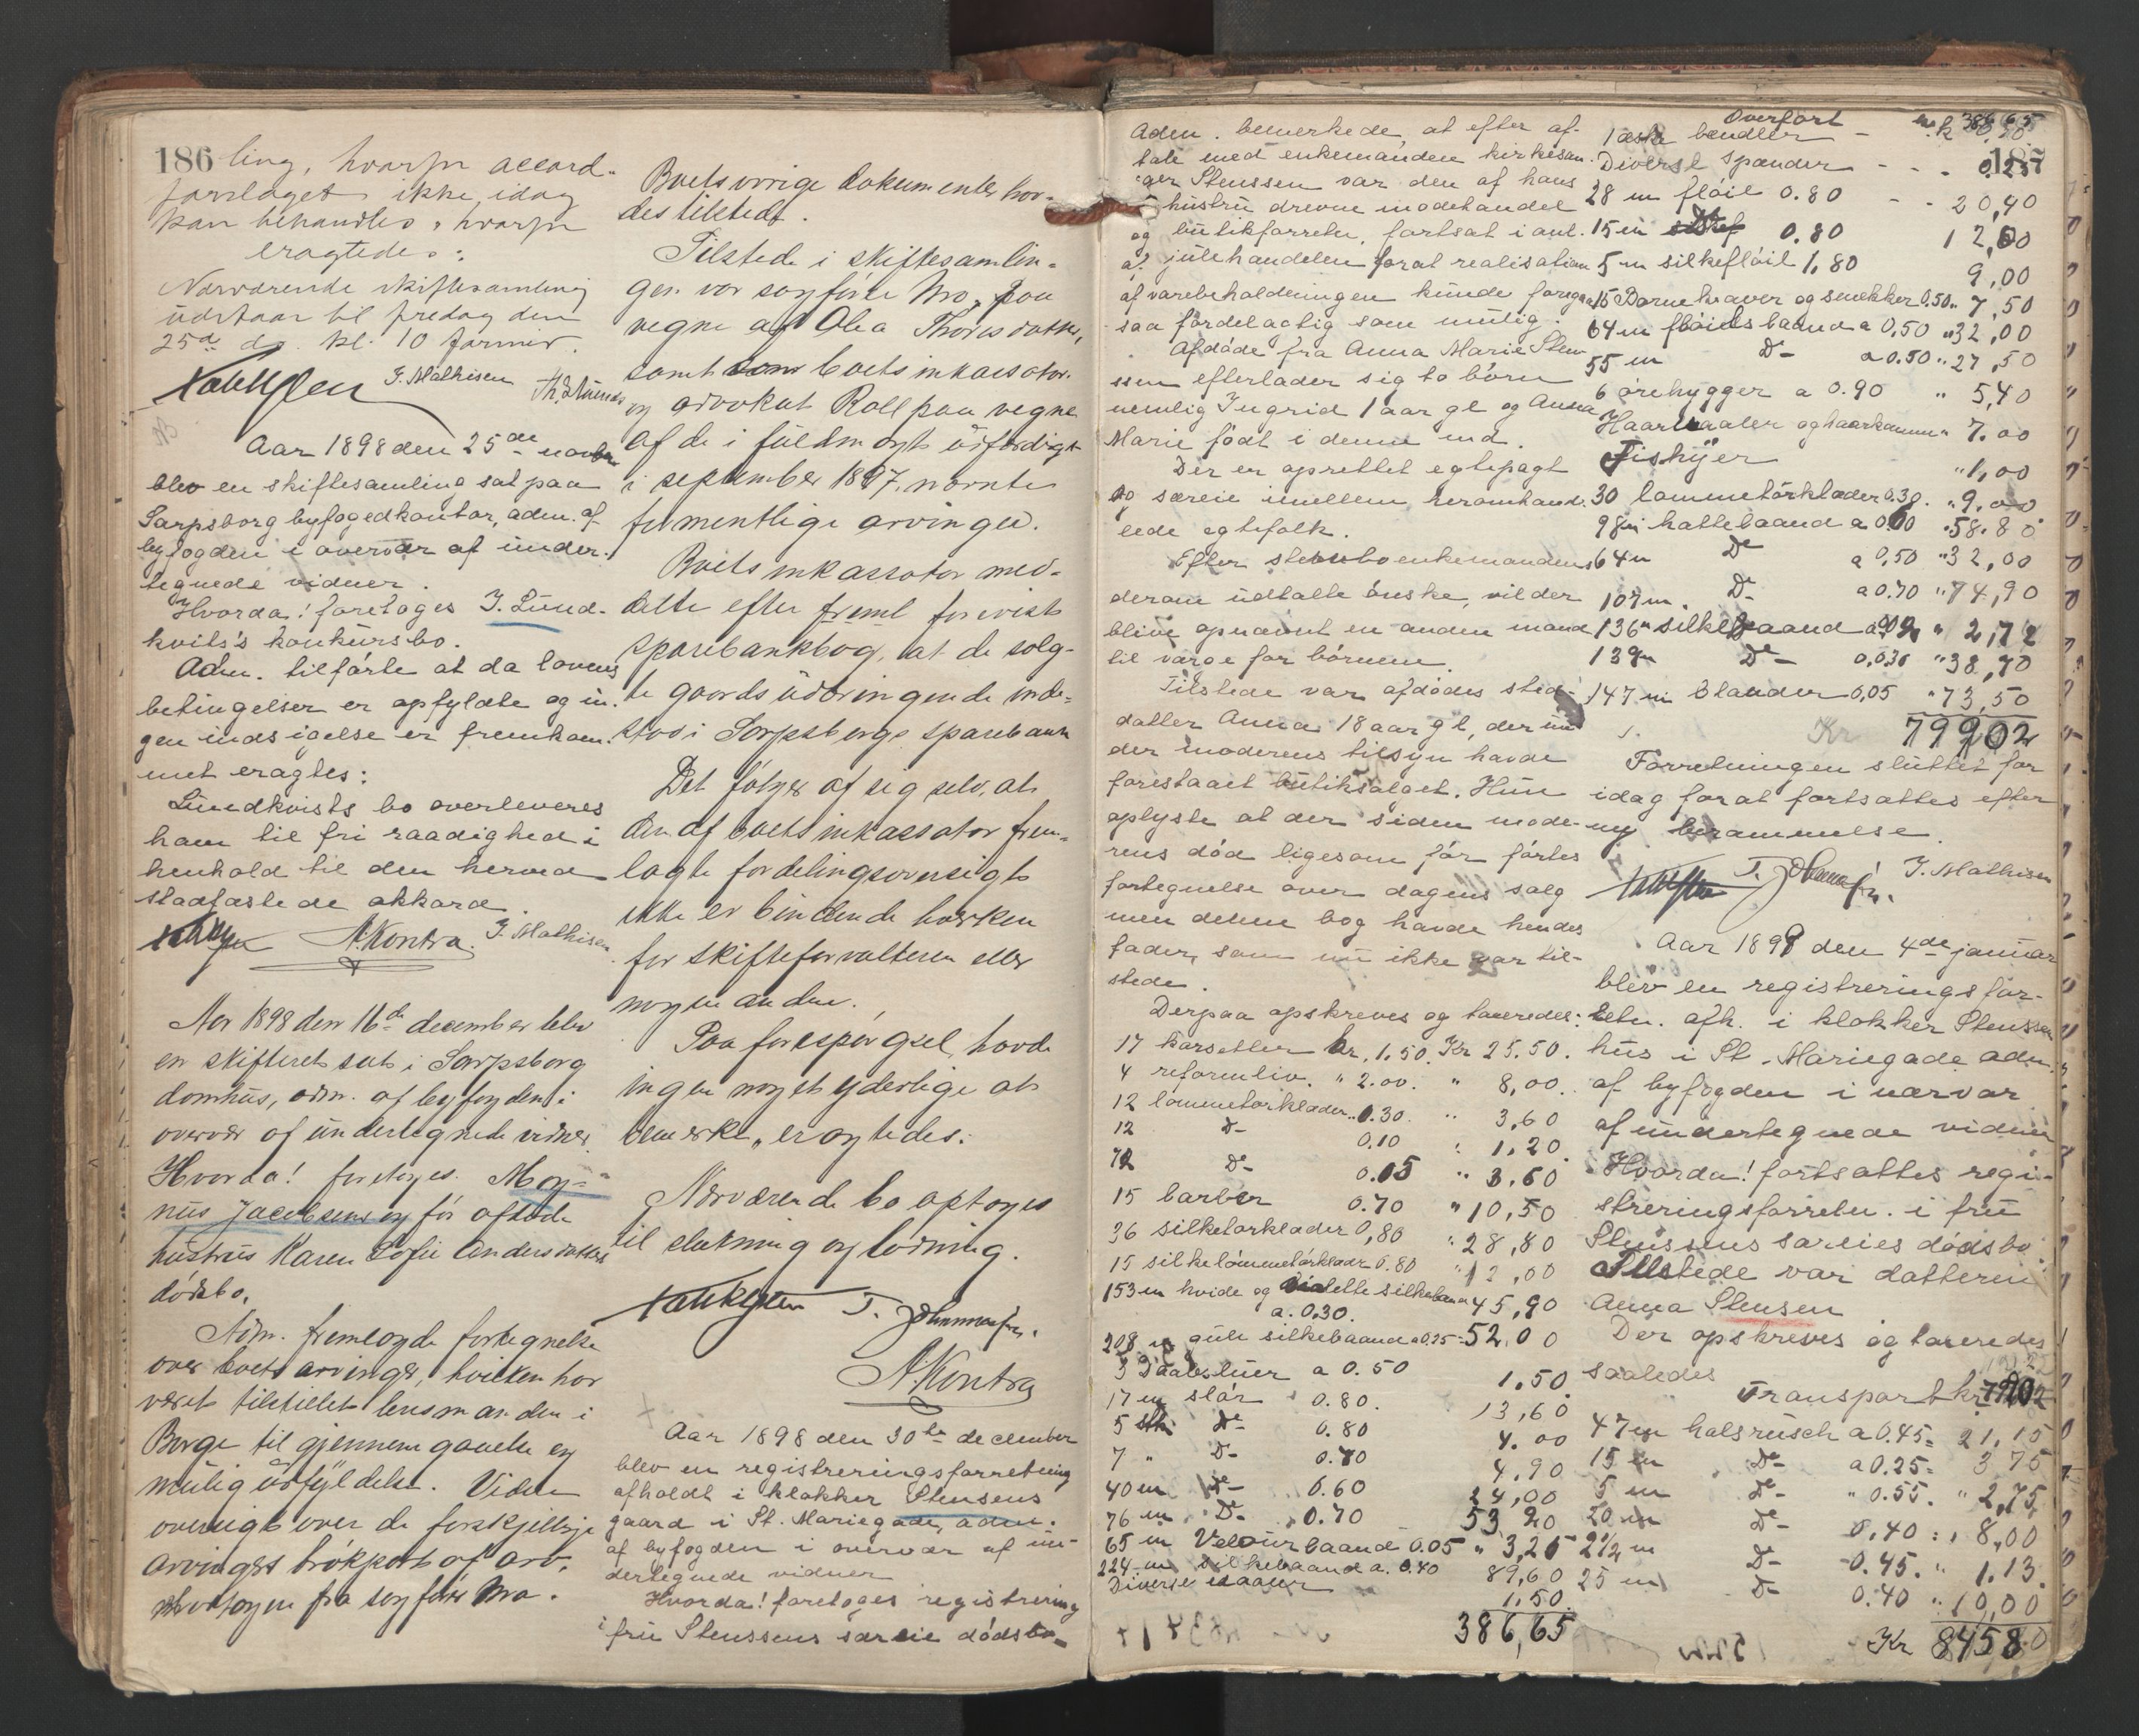 186 ling, hvorfor accord-
forslaget ikke idag
kan behandles, hvorfor
eragtedes:
Nærværende skiftesamling
udstaar til fredag den
25de ds. kl. 10 formid.
J. Mathisen
Aar 1898 den 25de novbr
blev en skiftesamling sat paa
Sarpsborg byfogedkontor, adm. af
byfogden i overvær af under-
tegnede vidner.
Hvorda! foretages J. Lund-
kvits's konkursbo.
Adm. tilførte at da lovens
betingelser er opfyldte og in-
gen indsigelse er fremkom-
met eragtes:
Lundkvists bo overleveres
ham til fri raadighed i
henhold til den herved
stadfæstede akkord.
A. Kontra. J. Mathisen
Aar 1898 den 16de december blev
en skifteret sat i Sarpsborg
domhus, adm. af byfogden i
overvær af undertegnede vidner.
Hvorda! foretages Mag-
nus Jacobsens og før afdøde
hustrus Karen Sofie Andersdatters
dødsbo.
Adm. fremlagde fortegnelse
over boets arvinger, hvilken har
været tilstillet lensmanden i
Borge til gjennemgaaelse og
mulig udfyldelse. Videre
oversigt over de forskjellige
arvingers brøkpart af arv,
modtagen fra sagfører Mro.
Boets øvrige dokumenter hav-
des tilstede.
Tilstede i skiftesamlin-
gen var sagfører Mro, paa
vegne af Olea Thoresdatter,
samt som boets inkassator
og advokat Roll paa vegne
af de i fuldmagt udfærdiget
i september 1897 nævnte
testamentlige arvinger.
Boets inkassator med-
delte efter freml forevist
sparebankbog, at de solg-
te gaards udbringende inde-
stod i Sarpsborgs sparebank
Det følger af sig selv, at
den af boets inkassator frem-
lagte fordelingsoversigt
ikke er bindende hverken
for skifteforvalteren eller
nogen anden.
Paa forespørgsel havde
ingen noget yderligere at
bemærke, eragtedes:
Nærværende bo optoges
til slutning og lodning.
T. Johannesen.
A. Kontra
Aar 1898 den 30te december
blev en registreringsforretning
afholdt i klokker Stensens
gaard i St. Mariegade, adm.
af byfogden i overvær af un-
dertegnede vidner
Hvorda! foretages registrering
i fru Stenssens særeie dødsbo-
Adm. bemerkede, at efter af-
tale med enkemanden kirkesan-
ger Stenssen var den af hans
hustru drevne modehandel
og butikforretn. fortsat i anl.
af julehandelen forat realisation
af varebeholdningen kunde foregaa
saa fordelagtig som mulig.
Afdøde fra Anna Marie Sten-
ssen efterlader sig to børn
nemlig Ingrid 1 aar gl og Anna
Marie født i denne md.
Der er oprettet egtepagt
og særeie imellem heromhand-
lede egtefolk.
Efter stervboenkemandens
derom udtalte ønske, vil der
blive opnævnt en anden mand
til værge for børnene.
Tilstede var afdødes sted-
datter Anna 18 aar gl, der un-
der moderens tilsyn havde
forestaaet butiksalget. Hun
oplyste at der siden mode-
rens død ligesom før førtes
fortegnelse over dagens salg
men denne bog havde hendes
fader, som nu ikke var til-
stede.
Derpaa opskreves og taxeredes:
17 korsetter kr. 1.50. Kr 25.50.
4 reformliv. " 2.00. " 8,00.
12 lommetørklæder " 0.30. " 3,60
12 d- 0.10 " 1,20.
72 D- 0.05 " 3.60
15 barber 0.70 " 10,50
36 silketørklæder 0,80 " 28,80
15 silkelommetørklæder 0.80 " 12,00
153 m hvide og violette silkebaand 45,90
a. 0.30.
208 m gule silkebaand a 0.25 = 52.00
3 Daabsluer a 0.50 1.50
17 m slør 0.80. 13,60
5 stk D- 0.80 4.00
7 " D- 0.70 4.90
40 m D- 0.60 24,00
76 m D- 0.70 53 20
65 m Velourbaand 0.05 " 3,25
224 m silkebaand a. 0.40 89,60
Diverse 1.50.
386,65
Overført kr 386 65
1 æske bændler -
Diverse spænder - - - 0.25
187
28 m fløil 0.80 - - 20,40
15 m 0.80 12,00
5 m silkefløil 1,80 9,00
15 Børnekraver og smekker 0.50 " 7,50
64 m fløielsbaand a 0,50 " 32,00
55 m D- a 0.50 " 27,50
6 ørehygger a 0.90 " 5,40
Haarnaaler og haarkamme " 7.00
Fiskyer " 1,00
30 lommetørklæder 0.30. " 9.00
98 m hattebaand a 0.60 " 58.80
64 m D- a 0,50 " 32,00
107 m. D- a 0.70 " 74,90
136 m silkebaand a 0.02 " 2,72
139 m D- 0,030 " 38,70
147 m Blonder 0,05 " 73,50
Kr 799 02
Forretningen sluttet for
idag forat fortsættes efter
ny berammelse.
T. Johannesen. J. Mathisen
Aar 1899 den 4de januar
blev en registreringsfor-
retn. afh. i klokker Stenssens
hus i St. Mariegade adm.
af byfogden i nærvær
af undertegnede vidner
Hvorda! fortsattes regi-
streringsforretn. i fru
Stenssens særeies dødsbo.
Tilstede var datteren
Anna Stensen
Der opskreves og taxeredes
saaledes
Transport kr 799 02
47 m halsrusch a 0.45 = 21,15
15 m D- a 0.25 = 3 75
5 m D- " 0.55. " 2,75
20 m D- 0,40 : , 8,00
2 1/2 m D- 0.45. " 1.13.
25 m D- 0.40 " 10,00
Kr 845 80